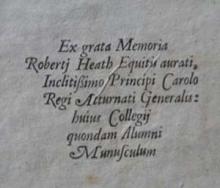 Ex grata Memoria
Robertj Heath Equitis aurati,
Inclitißimo Principi Carolo
Regi Atturnati Generalis:
huius Collegij
quondam Alumni
Munusculum